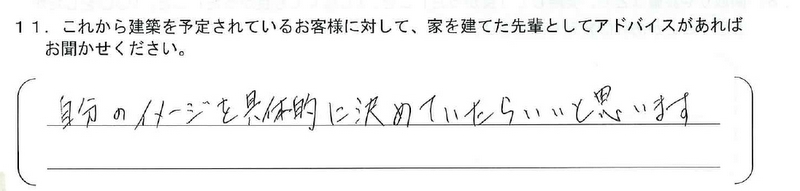 11．これから建築を予定されているお客様に対して、家を建てた先輩としてアドバイスがあれば
お聞かせください。
自分のイメージを具体的に決めていたらいいと思います